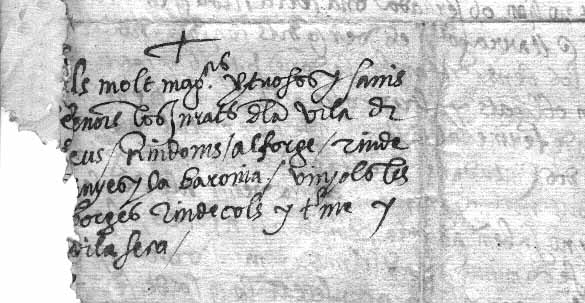 ls molt mag.cs vrtuosos y savis
enors los Jurats dla vila de
eus / Riudoms / alforge / riude
anyes y la baronia / vinyols les
borges riudecols y tme y
vila seca /